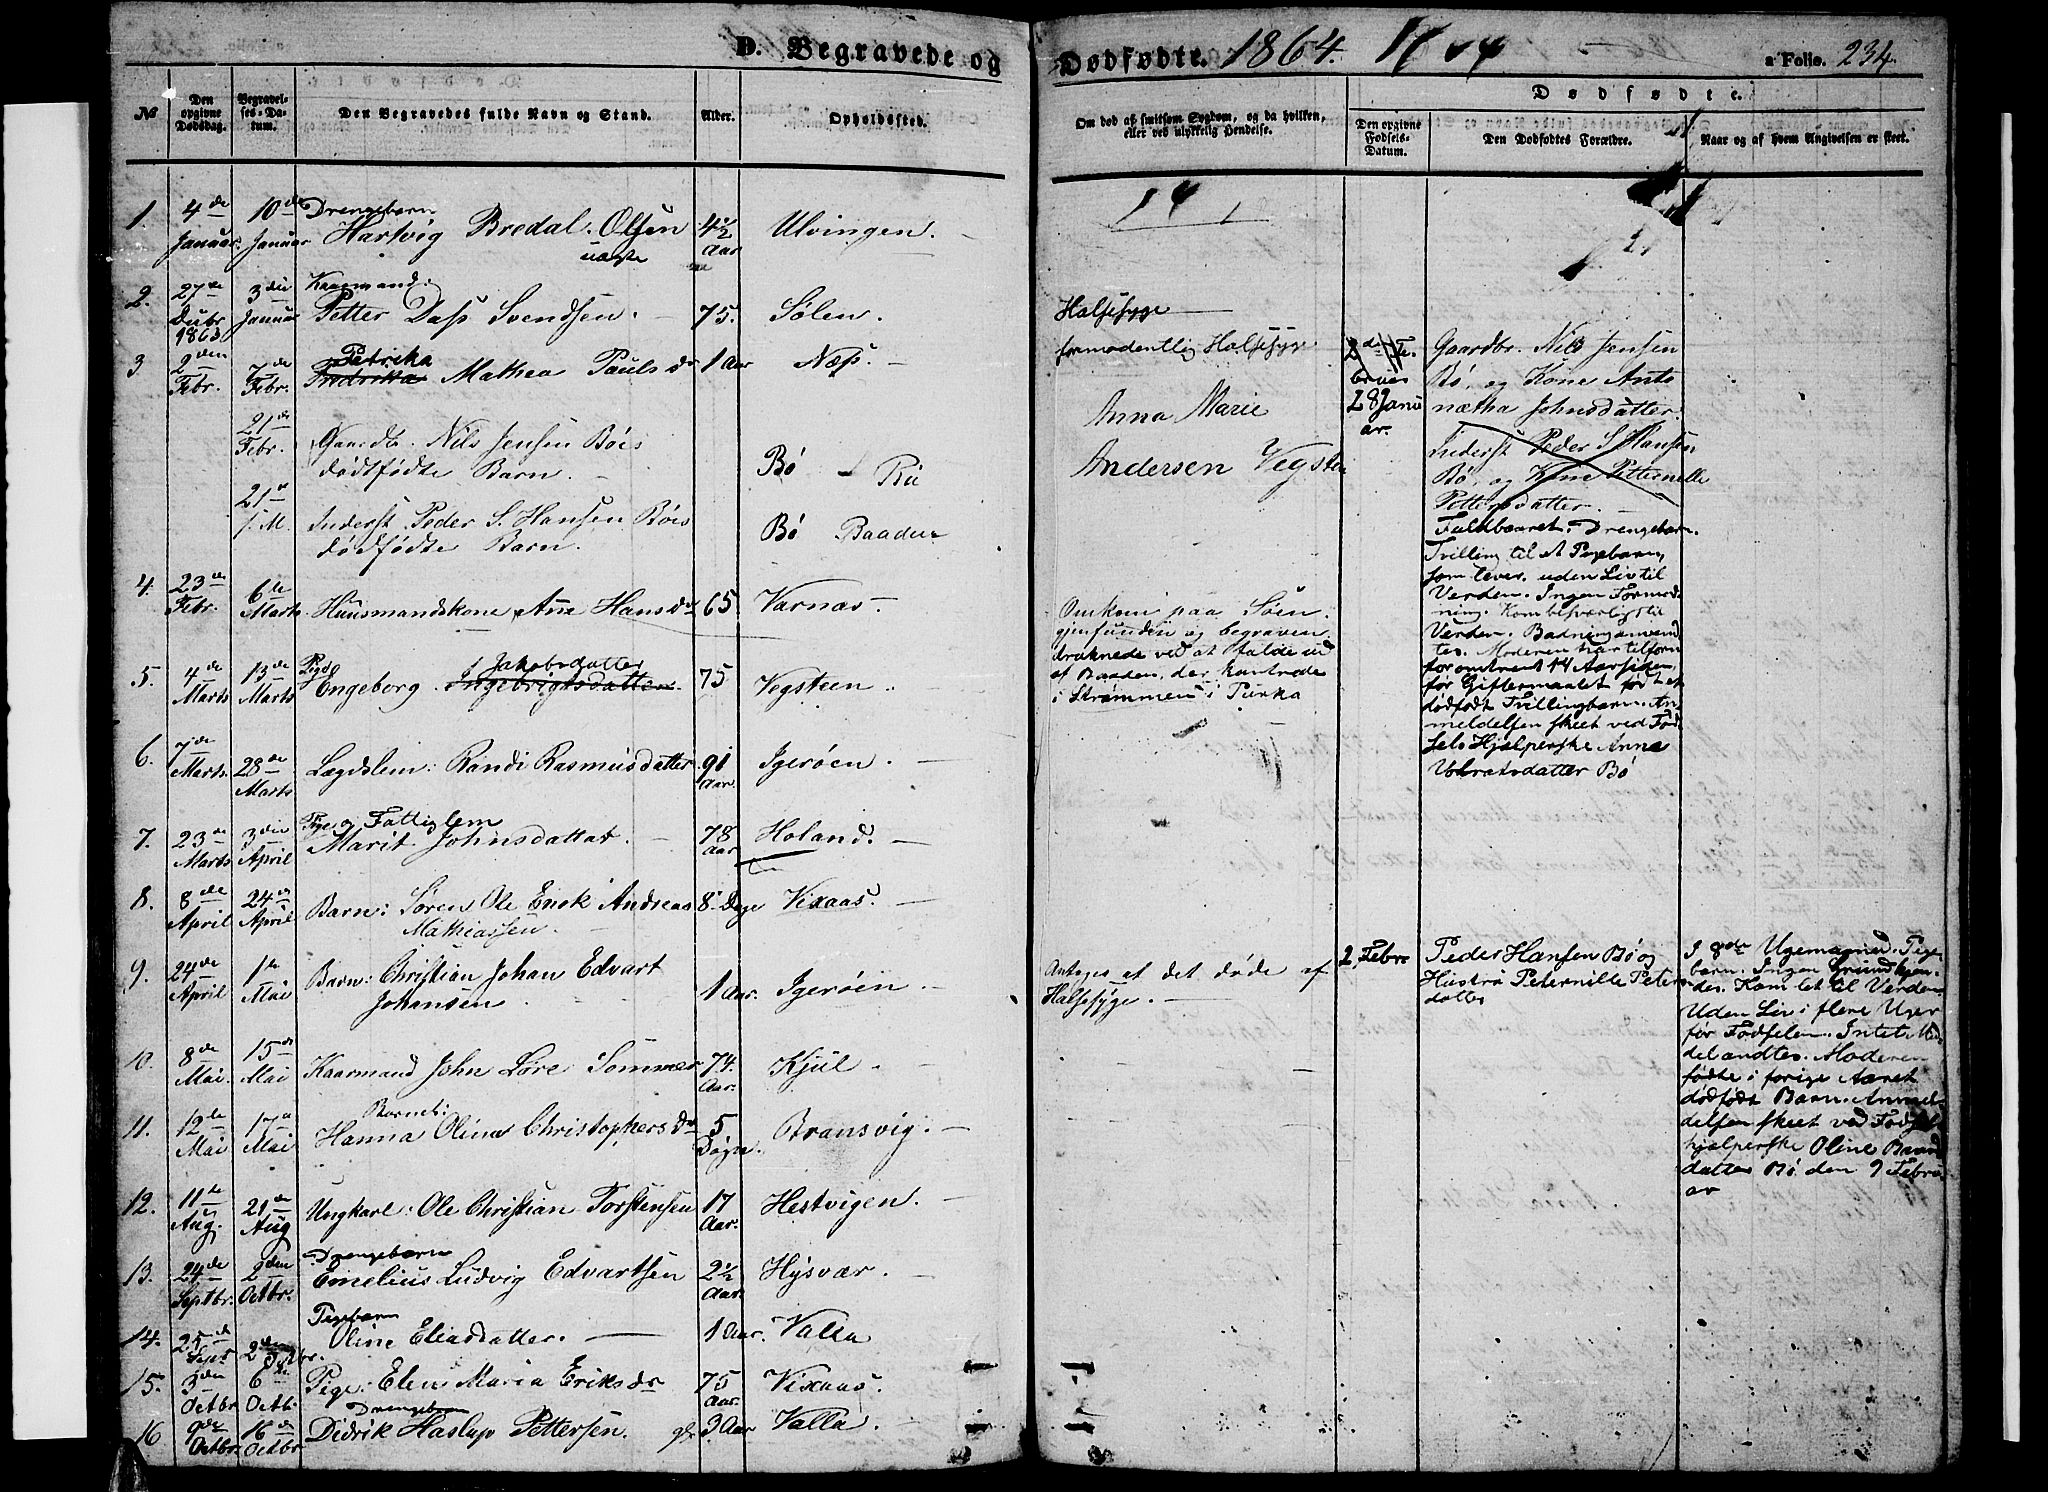 D. Begravede og Dødfødte. 1864.
a Folio. 234.
№
Den opgivne Dødsdag.
Begravelses-Datum.
Den Begravedes fulde Navn og Stand.
Alder.
Opholdssted.
Om død af smitsom Sygdom, og da hvilken, eller ved ulykkelig Hendelse.
Dødfødte.
Den opgivne Fødsels-Datum.
Den Dødfødtes Forældre.
Naar og af hvem Angivelsen er skeet.
1. 4de Januar. 10de Januar Drengebarn Hartvig Bredal Olsen 4½ Aar Ulvingen.
2. 27de Decbr 1863 3die Januar Kaarmand: Petter Dass Svendsen. 75. Sølen.
3 2den Febr. 7de Febr. Petrika Fredrika Mathea Pauls dr 1 Aar Næs.
21de Febr. Gaardbr. Nils Jensen Bøes
dødfødte Barn. Bø
21de s. M. Inderst Peder S. Hansen Bøes
dødfødte Barn. Bø
4. 23de Febr. 6te Marts Huusmandskone Ane Hans dr 65. Varnæs.
5. 4de Marts 13de Marts Pige Engeborg Jakobsdatter Ingebrigtsdatter. 75 Vegsteen.
6. 7de Marts. 28de Marts Lægdslem: Randi Rasmusdatter 91 Aar. Igerøen.
7. 23de Marts 3die April Pige og Fattiglem
Marit Johnsdatter. 78 Aar Holand.
8. 8de April 24de April Barn: Søren Ole Enok Andreas 8 Dage Vixaas.
Mathiassen.
9. 24de April 1te Mai Barn: Christian Johan Edvart
Johansen 1 Aar. Igerøen.
10. 8de Mai. 15de Mai Kaarmand John Lore Sommer 74. Aar. Kjul.
11. 12te Mai 17de Mai Barnet:
Hanna Olina Christophers dr 5 Døgn. Bransvig.
12. 11te Aug. 21de Aug Ungkarl: Ole Christian Torstensen 17 Aar. Hestvigen.
13. 24de Septbr. 2den Octbr. Drengebarn
Emelius Ludvig Edvartsen 2½ Aar. Hysvær.
14. 25de Sept 2den Octbr. Pigebarn
Oline Eliasdatter. 1 Aar. Valla
15. 3den Octbr 6te Octb. Pige: Elen Maria Eriks dr 75 Aar. Vixaas.
16 9de Octbr. 16de Octbr Drengebarn
Didrik Haslup Pettersen. 3 Aar Valla.
Halsesyge
formodentlig Halssyge
Anna Marie
Andersen Vegsten
Omkom paa Søen
gjenfunden og begraven
druknede ved at falde ud
af Baaden, der kantrede
i Strømmen i
Antages at det døde af
Halsesyge.
2de Februar
28 Januar.
Gaardbr. Nils Jensen
Bø, og Kone Antonætha Johnsdatter.
Inderst Peder S. Hansen
Bø, og Kone Petternelle
Pettersdatter.
Fuldbaaret. Drengebarn.
Tvilling til et Pigebarn,
som lever. uden Liv til
Verden. Ingen Formodning. Kom besværligst til
Verden. Badning anvendtes. Moderen har tilforn
for omtrent 14 Aar siden,
før Giftermaalet født et
dødfødt Tvillingbarn. Anmeldelsen skeet ved Fødselshjælperske Anna
Bø
2 Febr. Peder Hansen Bø og
Hustru Peternille Petersdatter
I 8de Ugemaaned. Pigebarn. Ingen Grund kjendes. Kom let til Verden
Uden Liv i flere Uger
før Fødselen. Intet Middel andtes. Moderen
fødte i forige Aaret
dødfødt Barn. Anmeldelsen skeet ved Fødselhjælperske Oline
datter Bø den 9 Februar